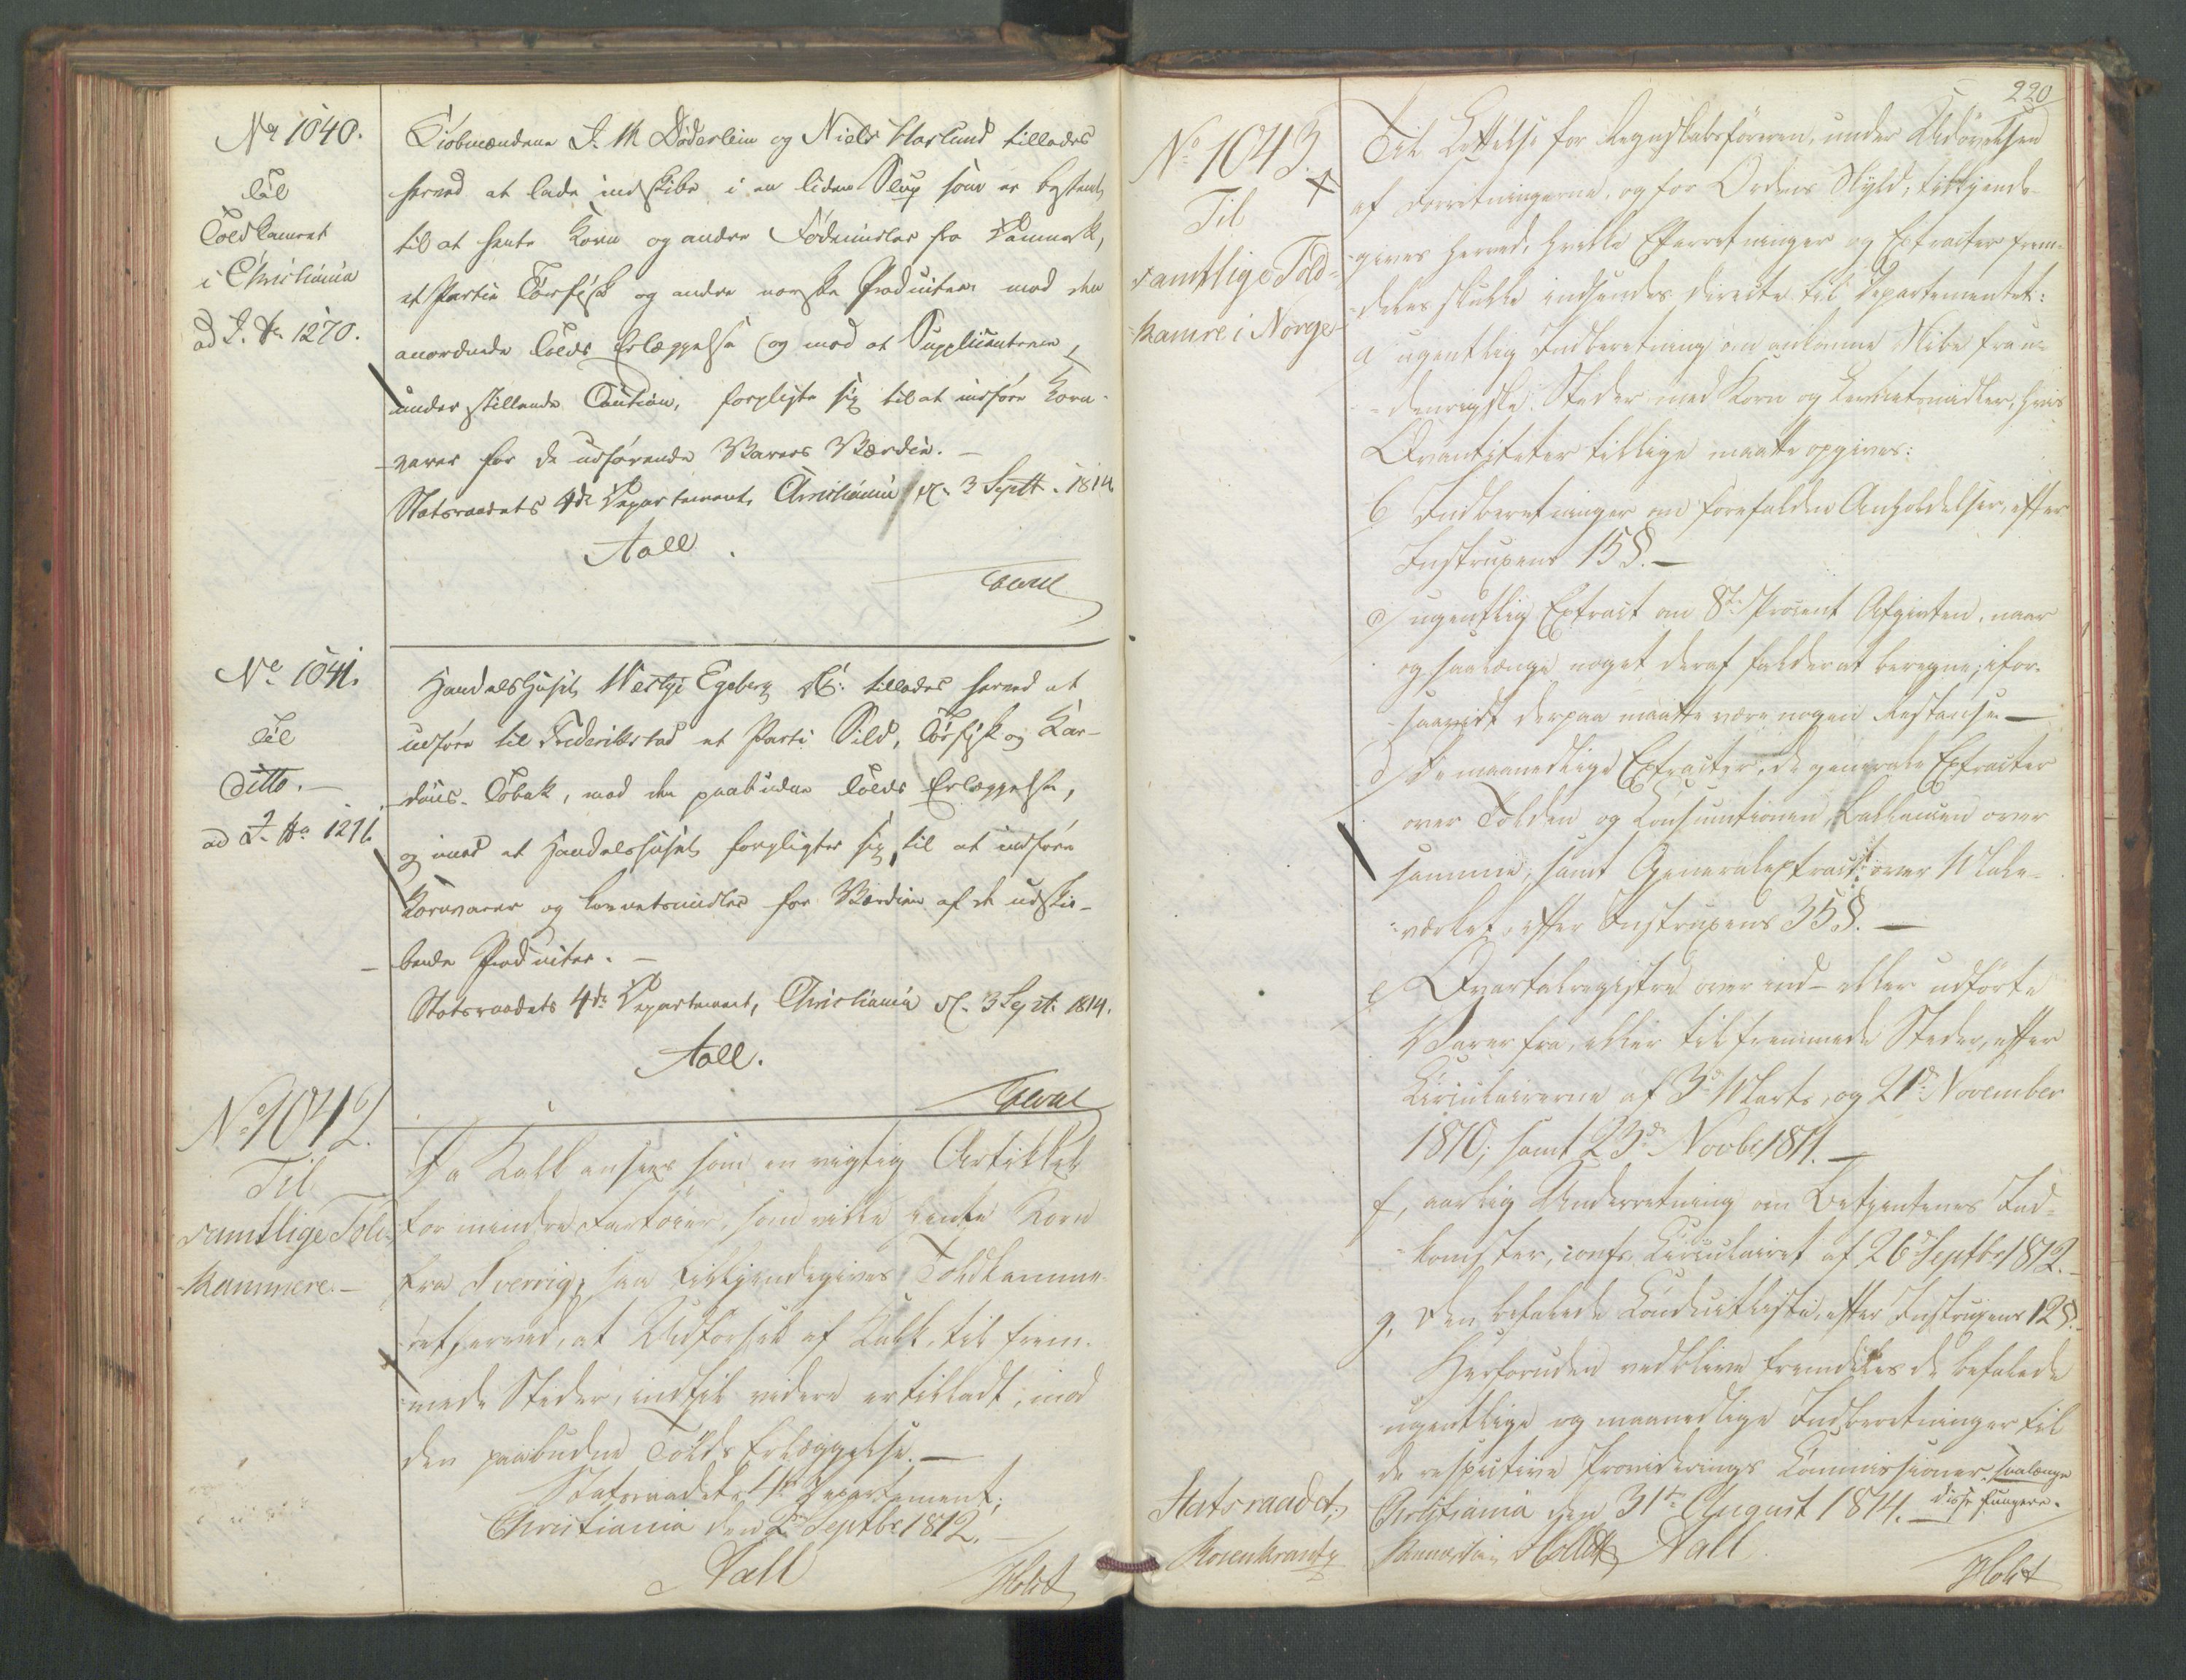 No 1040.
Til
Toldkamret
i Christiania
ad J. No 1270.
Kiøbmændene J. M Døderlein og Niels Haslund tillades
herved at lade indskibe i en liden Slup som er bestemt
til at hente Korn og andre Fødemidler fra Danmark,
et Partie Tørfisk og andre norske Producter mod den
anordnede Tolds Erlæggelse og mod at Supplicanterne,
under stillende Caution, forpligte sig til at indføre Korn-
varer for de udførende Varers Værdie. -
Statsraadets 4de Departement, Christiania d. 3 Septr. 1814
Aall.
No 1041.
Til
Ditto. -
ad J. No 1271.
Handelshuset Westye Egeberg & C: tillades herved at
udføre til Frederikstad et Parti Sild, Tørfisk og Kar-
dus-Tobak, mod den paabudne Tolds Erlæggelse,
og mod at Handelshuset forpligter sig til at indføre
Kornvarer og Levnetsmidler for Værdien af de udski-
bende Producter. -
Statsraadets 4de Departement, Christiania d. 3 Sept: 1814.
Aall.
No 1042.
Til
samtlige Told-
kammere. -
Da Kalk ansees som en vigtig Artikkel
for mindre Fartøier, som ville hente Korn
fra Sverrig, saa tilkjendegives Toldkamme-
ret herved, at Udførsel af Kalk, til frem-
mede Steder, indtil videre er tilladt, mod
den paabudne Tolds Erlæggelse. -
Statsraadets 4de Departement,
Christiania den 2den Septbr 1812.
Aall
Holst
220
No 1043.
Til
samtlige Told-
kamre i Norge
Til Lettelse for Regnskabsføreren, under Udøvelsen
af Forretningerne, og for Ordens Skyld, tilkjende-
gives herved, hvilke Efterretninger og Extracter frem-
deles skulle indsendes directe til Departementet:
a ugentlig Indberetning om ankomne Skibe fra u-
denrigske Steder med Korn og Levnetsmidler, hvis
Qvantiteter tillige maatte opgives:
b Indberetninger om forefaldne Anholdelser, efter
Instruxens 15 §. -
c) ugentlig Extract om 8de Procent Afgivten, naar
og saalænge noget deraf falder at beregne, ifor-
saavidt derpaa maatte være nogen Restanse -
d) De maanedlige Extracter, de generale Extracter
over Tolden og Consumtionen, Ballancen over
samme, samt Generalextract over Male-
værket, efter Instruxens 35 §. -
e) Qvartalregistre over ind- eller udførte
Varer fra, eller til fremmede Steder, efter
Circulairerne af 3d Marts, og 21d November
1810, samt 23d Novbr 1811. -
f, aarlig Underretning om Betjentenes Ind-
komster, confr. Circulairet af 26d Septbr 1812. -
g, Den befalede Conduitliste, efter Instruxens 12 §.
Herforuden vedblive fremdeles de befalede
ugentlige og maanedlige Indberetninger til
de respective Providerings Commissioner, saalænge
disse fungere.
Christiania den 31te August 1814. -
Statsraadet,
Rosenkrantz
Aall
Holst